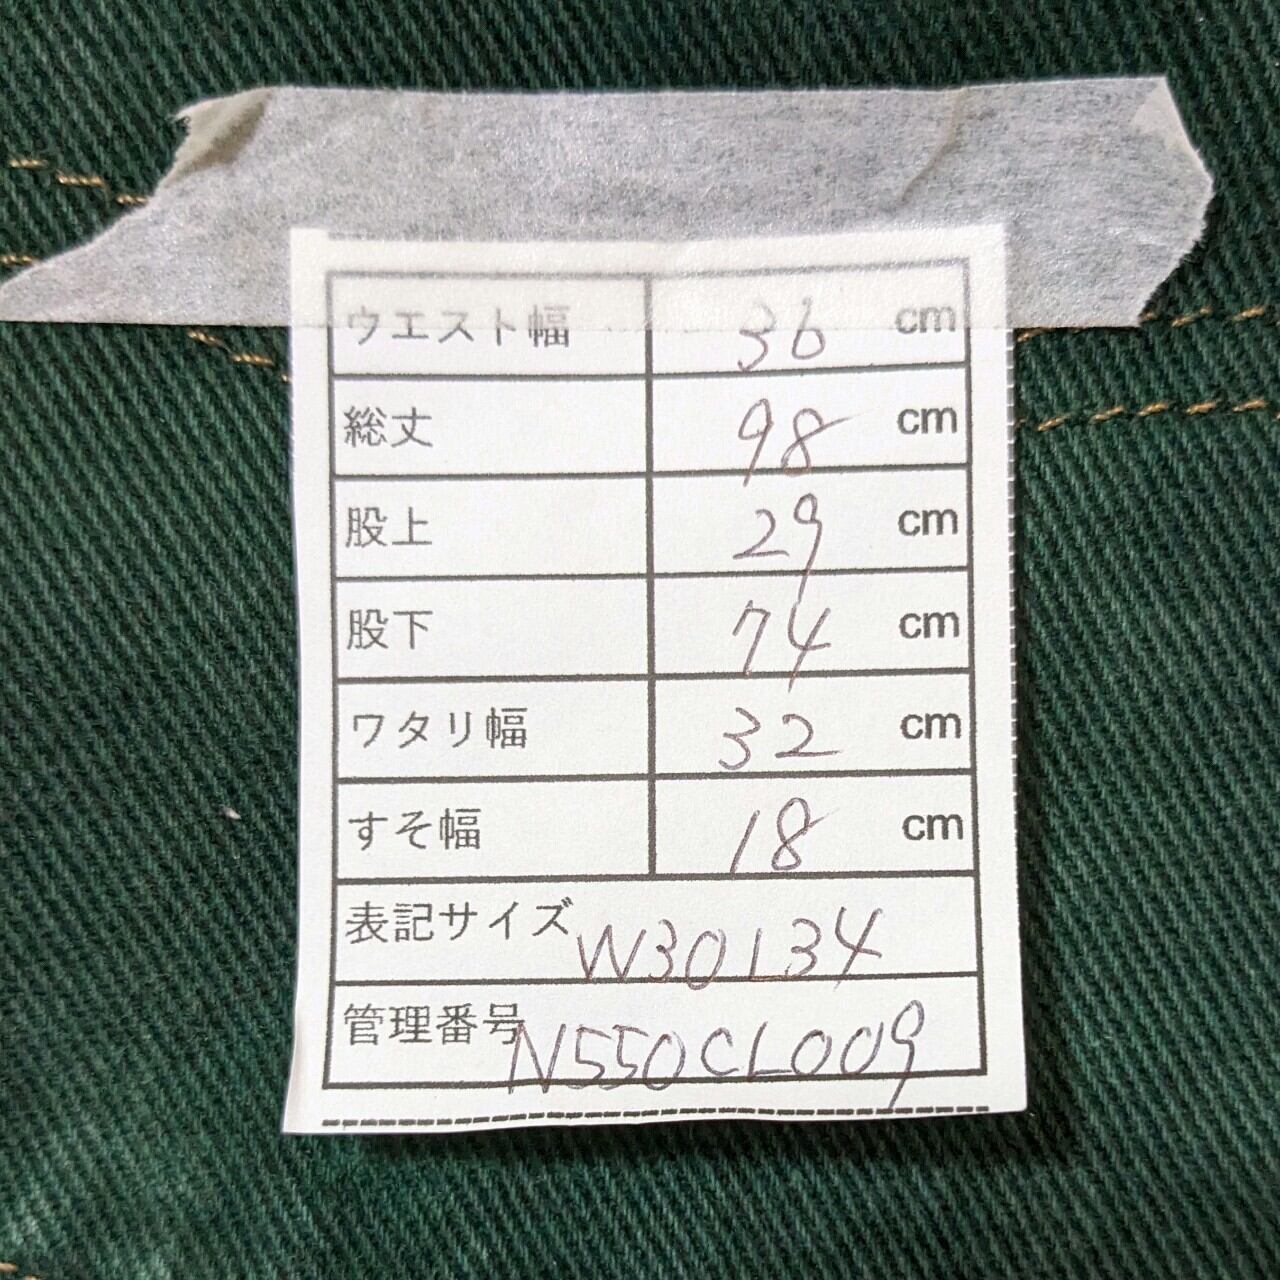 ウエスト幅 36 cm
総丈 98 cm
股上 29 cm
股下 74 cm
ワタリ幅 32 cm
すそ幅 18 cm
表記サイズ W30L34
管理番号 N550CL009